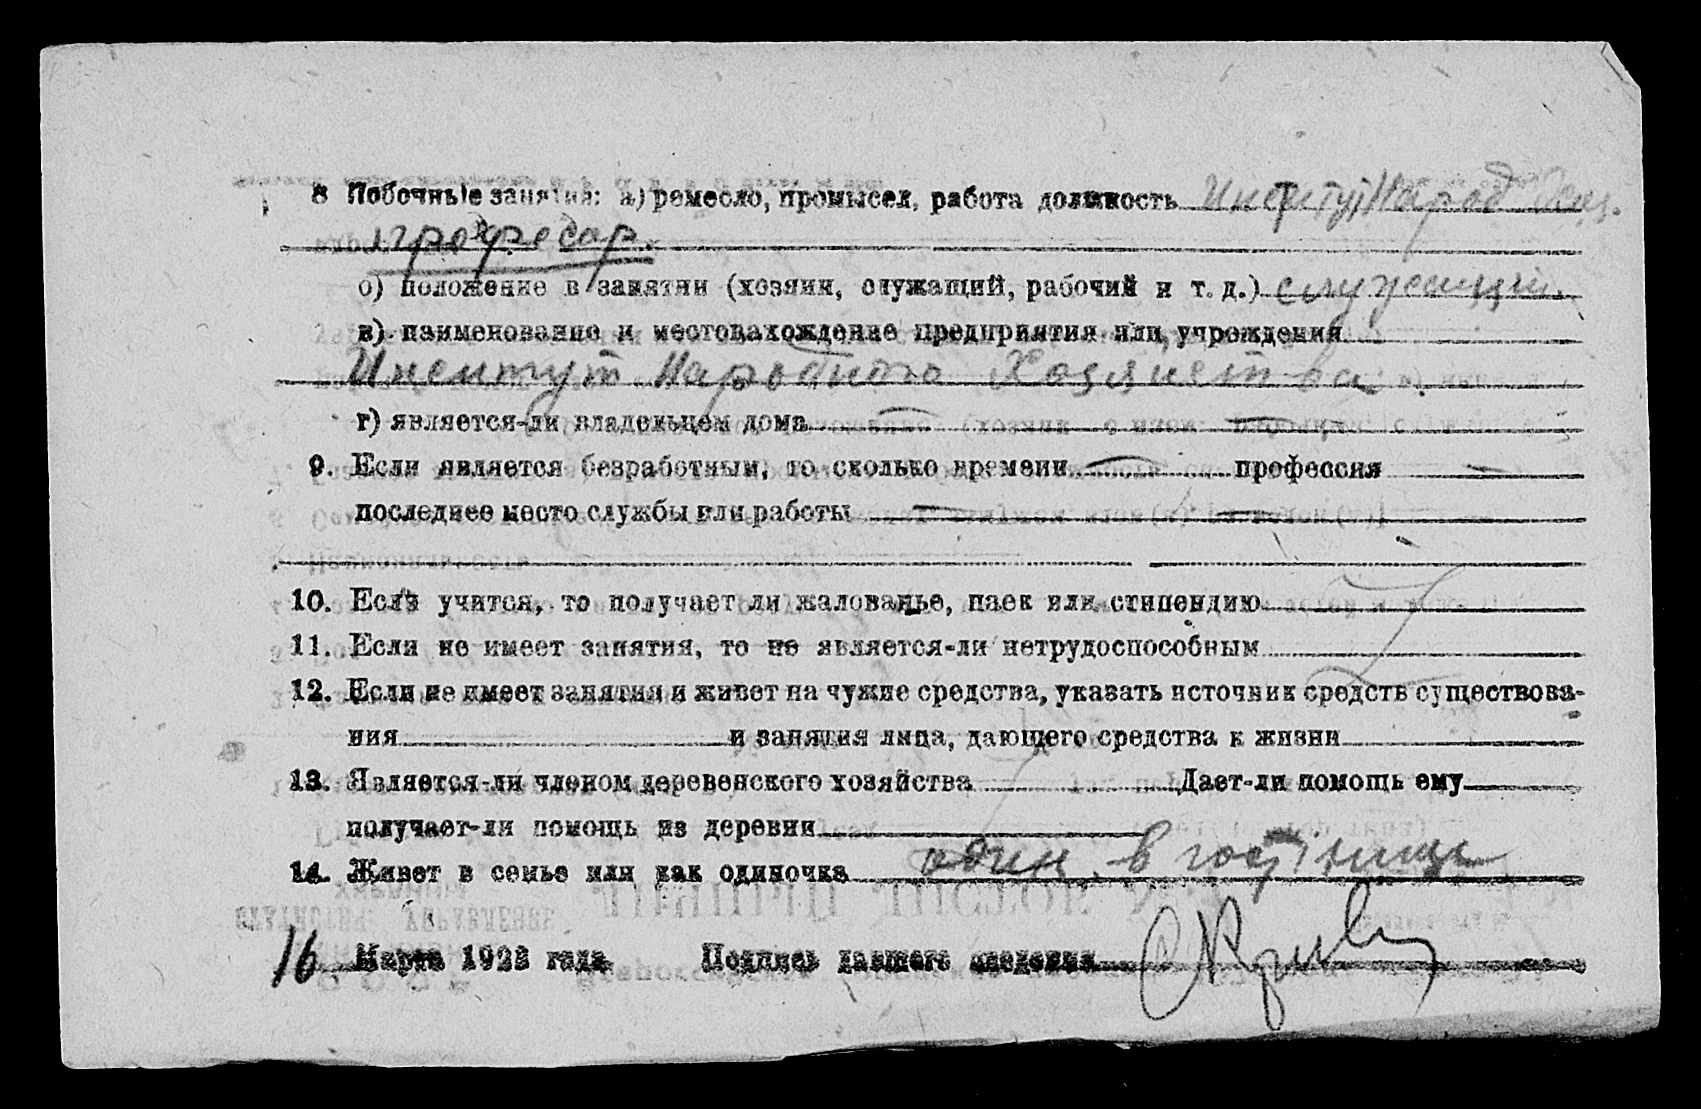 8 Побочные занятия: а) ремесло, промысел, работа должность Институт Народ Хоз.
профессор.
б) положение в занятии (хозяин, служащий, рабочий и т. д.) служащий.
в) наименование и местонахождение предприятия или учреждения
Институт Народного Хозяйства.
г) является-ли владельцем дома —
9. Если является безработным, то сколько времени — профессия —
последнее место службы или работы — —
10. Если учится, то получает ли жалованье, паек или стипендию
11. Если не имеет занятия, то не является-ли нетрудоспособным
12. Если не имеет занятия и живет на чужие средства, указать источник средств существова-
ния и занятия лица, дающего средства к жизни
13. Является-ли членом деревенского хозяйства Дает-ли помощь ему
получает-ли помощь из деревни
14. Живет в семье или как одиночка один в гостинице
16 Марта 1923 года Подпись давшего сведения